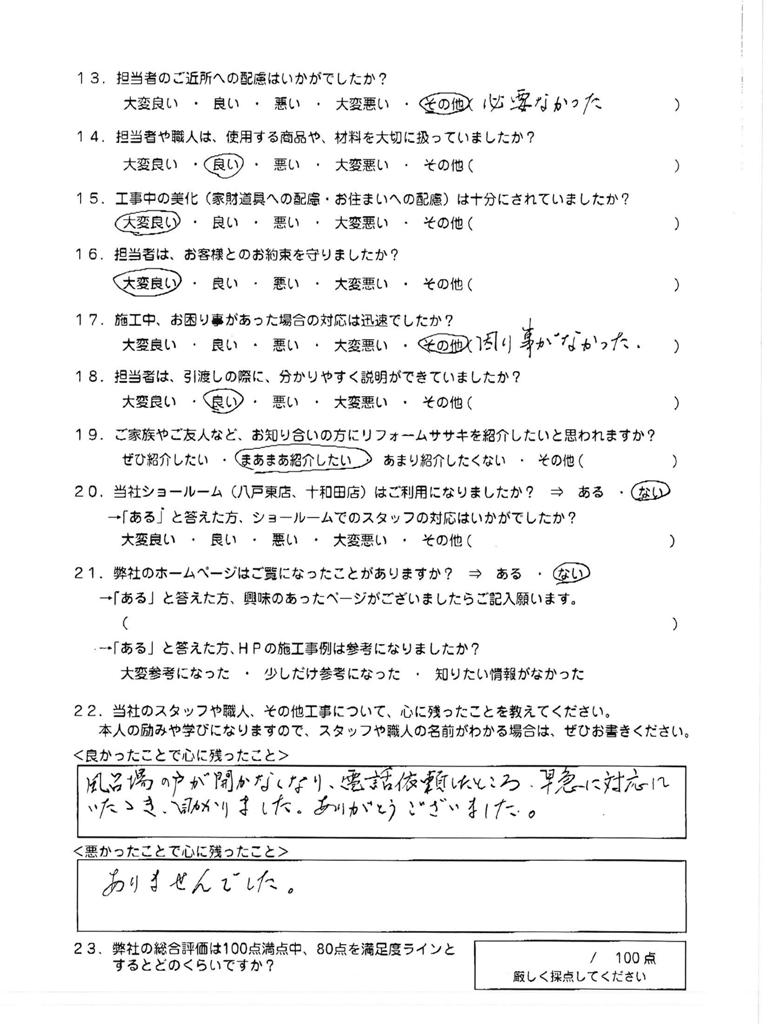 13．担当者のご近所への配慮はいかがでしたか？
大変良い ・ 良い ・ 悪い ・ 大変悪い ・ その他( 必要なかった )
14．担当者や職人は、使用する商品や、材料を大切に扱っていましたか？
大変良い ・ 良い ・ 悪い ・ 大変悪い ・ その他( )
15．工事中の美化（家財道具への配慮・お住まいへの配慮）は十分にされていましたか？
大変良い ・ 良い ・ 悪い ・ 大変悪い ・ その他( )
16．担当者は、お客様とのお約束を守りましたか？
大変良い ・ 良い ・ 悪い ・ 大変悪い ・ その他( )
17．施工中、お困り事があった場合の対応は迅速でしたか？
大変良い ・ 良い ・ 悪い ・ 大変悪い ・ その他( 困り事がなかった. )
18．担当者は、引渡しの際に、分かりやすく説明ができていましたか？
大変良い ・ 良い ・ 悪い ・ 大変悪い ・ その他( )
19．ご家族やご友人など、お知り合いの方にリフォームササキを紹介したいと思われますか？
ぜひ紹介したい ・ まあまあ紹介したい ・ あまり紹介したくない ・ その他( )
20．当社ショールーム（八戸東店、十和田店）はご利用になりましたか？ ⇒ ある ・ ない
→「ある」と答えた方、ショールームでのスタッフの対応はいかがでしたか？
大変良い ・ 良い ・ 悪い ・ 大変悪い ・ その他( )
21．弊社のホームページはご覧になったことがありますか？ ⇒ ある ・ ない
→「ある」と答えた方、興味のあったページがございましたらご記入願います。
( )
→「ある」と答えた方、HPの施工事例は参考になりましたか？
大変参考になった ・ 少しだけ参考になった ・ 知りたい情報がなかった
22．当社のスタッフや職人、その他工事について、心に残ったことを教えてください。
本人の励みや学びになりますので、スタッフや職人の名前がわかる場合は、ぜひお書きください。
<良かったことで心に残ったこと>
風呂場の戸が開かなくなり、電話依頼したところ、早急に対応に
いただき、助かりました。ありがとうございました。
<悪かったことで心に残ったこと>
ありませんでした。
23．弊社の総合評価は100点満点中、80点を満足度ラインと
するとどのくらいですか？
/ 100点
厳しく採点してください